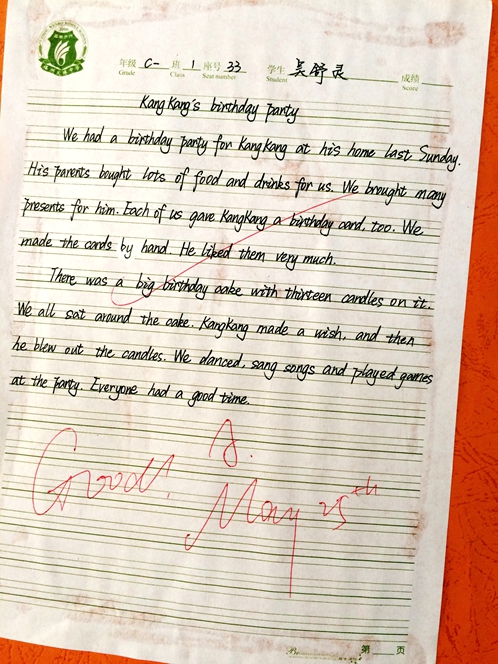 年级 C- 班 1 座号 33 学生 吴舒灵 成绩
Grade Class Seat number Student Score
KangKang's birthday party
We had a birthday party for KangKang at his home last Sunday.
His parents bought lots of food and drinks for us. We brought many
presents for him. Each of us gave KangKang a birthday card, too. We
made the cards by hand. He liked them very much.
There was a big birthday cake with thirteen candles on it.
We all sat around the cake. KangKang made a wish, and then
he blew out the candles. We danced, sang songs and played games
at the party. Everyone had a good time.
Good! A.
May 25th
第 页